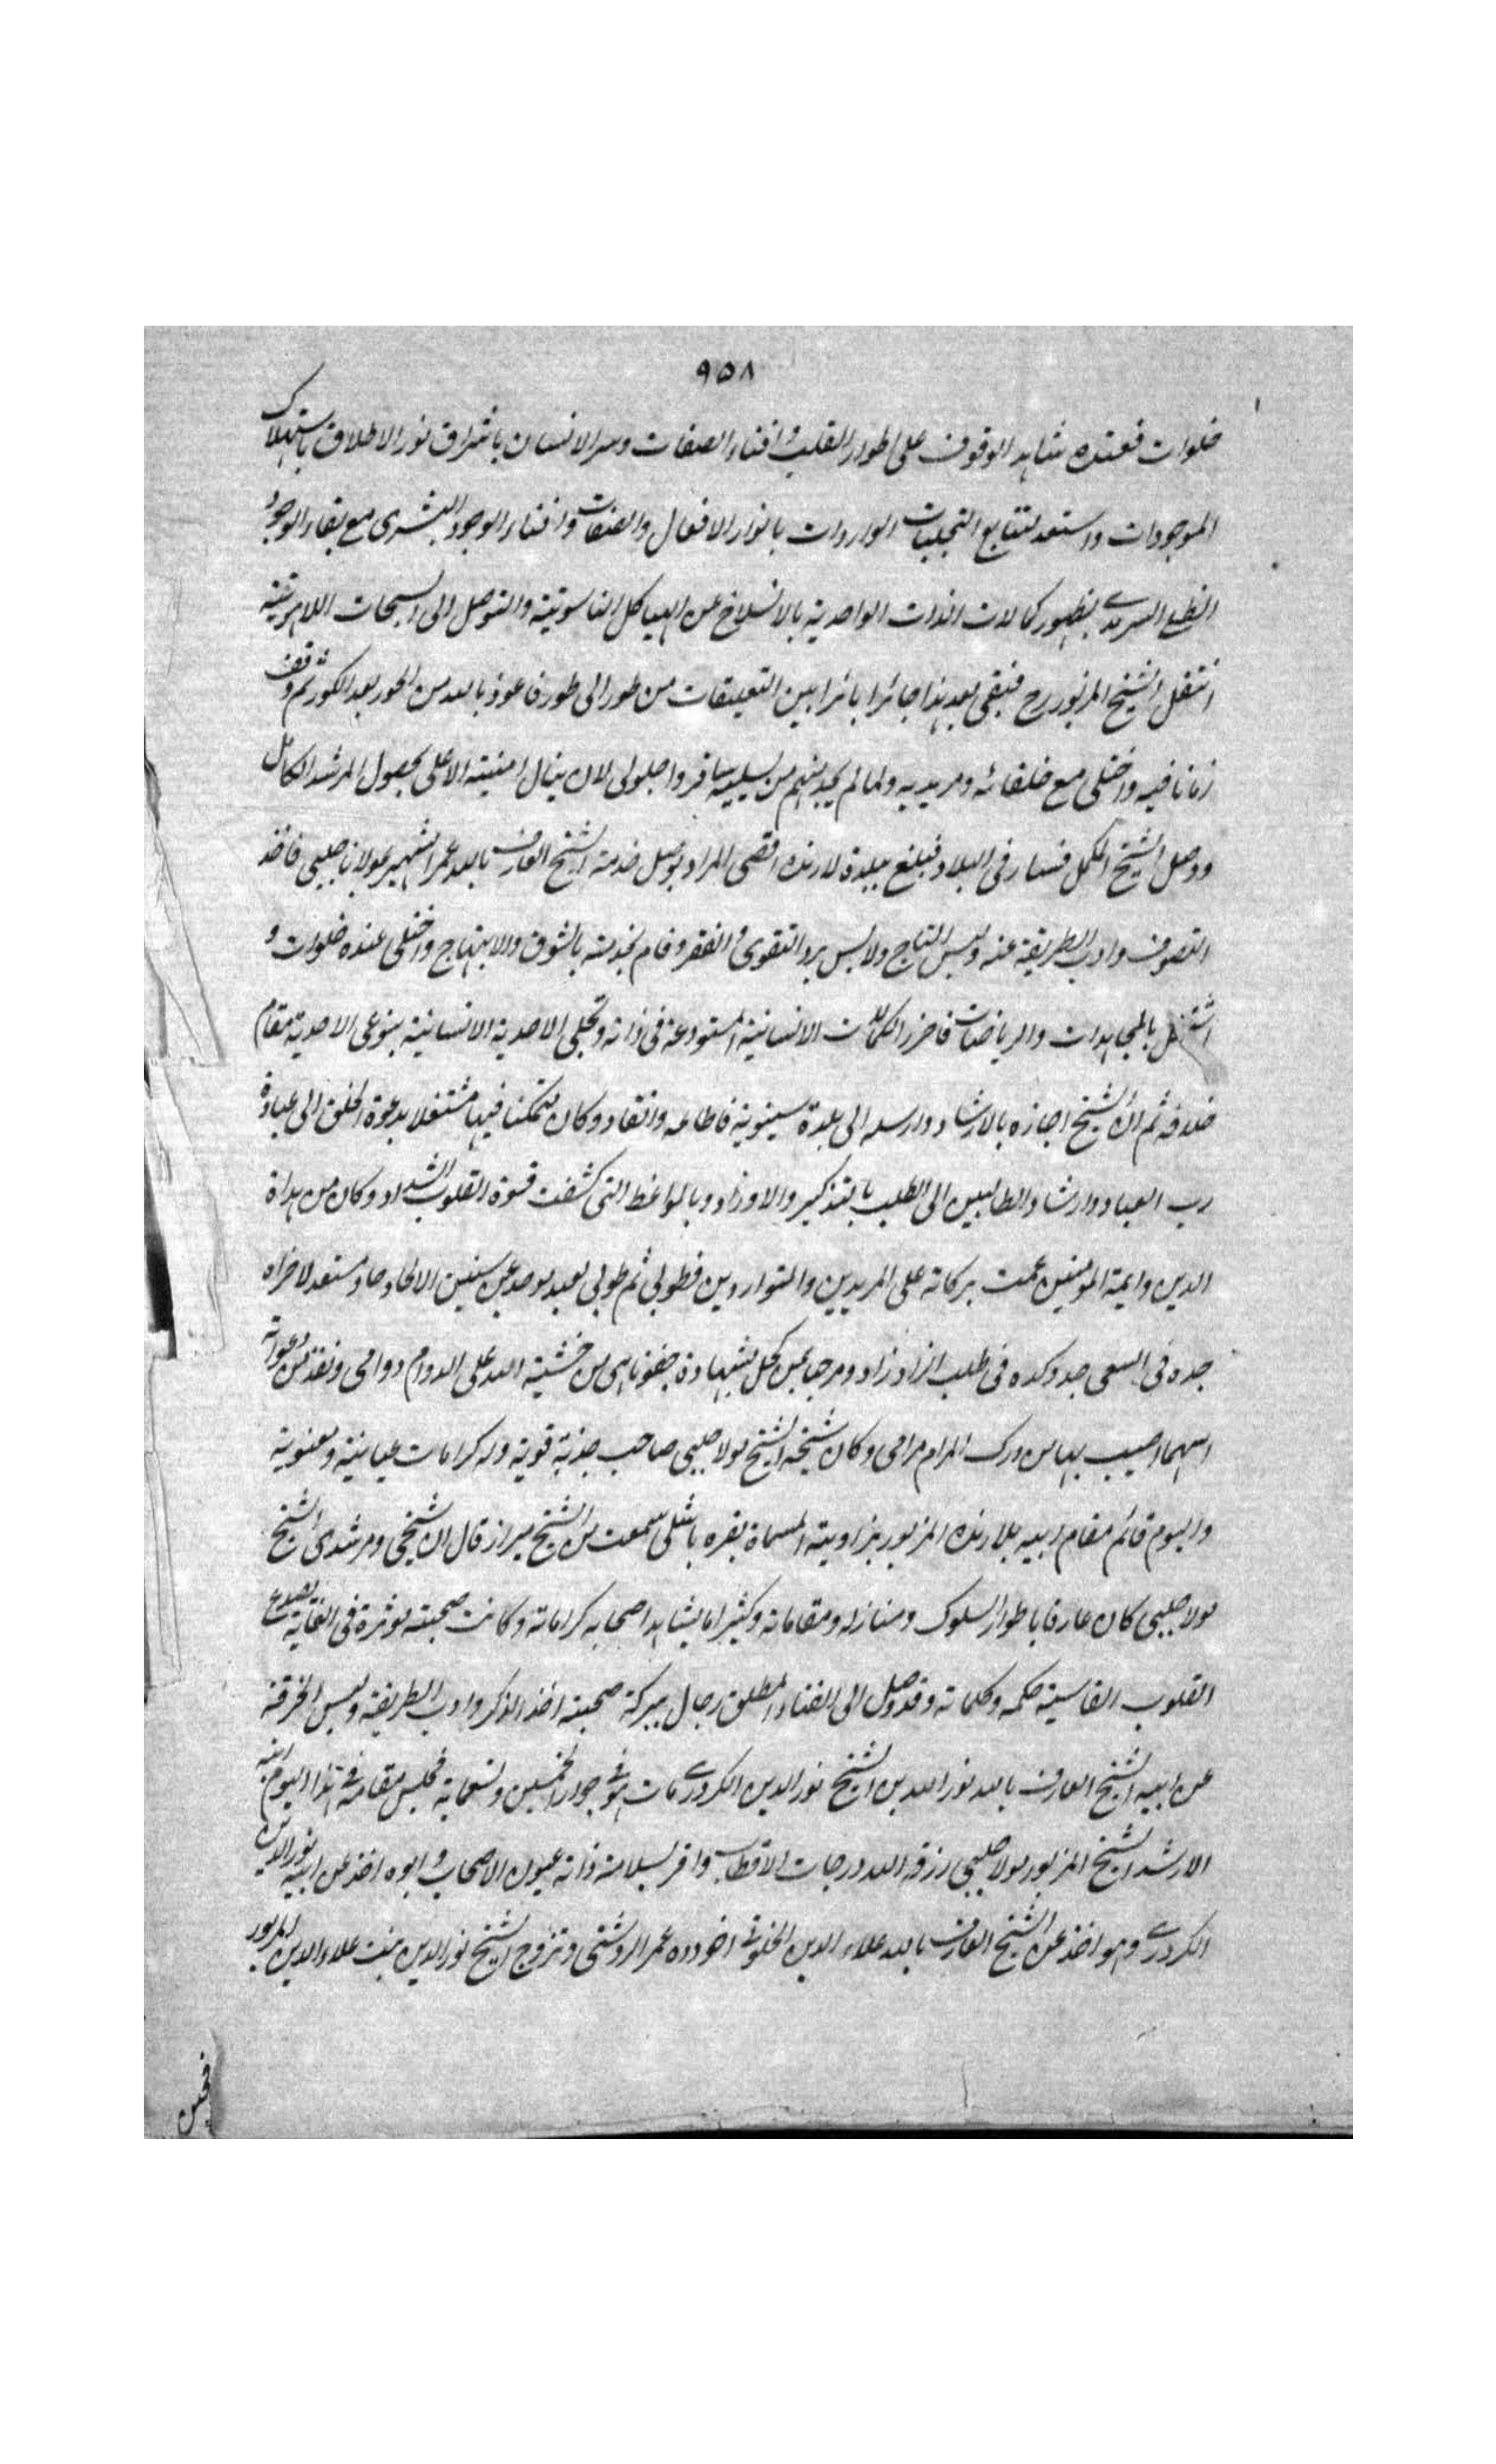 ٩٥٨
خلوات فعنده شاهد الوقوف على اطوار القلب وافناء الصفات وسر الانسان باشراق نور الاطلاق باستهلاك
الموجودات واستعد لتتابع التجليات الواردات بانوار الافعال والصفات وافناء الوجود البشرى مع بقاء الوجود
السرمدى بظهور كمالات الذات الواحدية بالانسلاخ عن الهياكل الناسوتية والتوصل الى السبحات اللاهوتية
انتقل الشيخ المزبور رح فبقى بعد هذا حائرا بائرا بين التعينات من طور الى طور فاعوذ بالله من الحور بعد الكور ثم وقف
زمانا فيه واختلى مع خلفائه ومريديه ولما لم يجد منهم من يسليه سافر لان ينال امنيته الاعلى بحصول المرشد الكامل
ووصل الشيخ المكمل فسار فى البلاد فبلغ ببلدة لارنده اقصى المراد بوصل خدمة الشيخ العارف بالله عمر الشهير بمولانا چلبى فاخذ
التصوف واداب الطريقة عنه ولبس التاج ولابس برد التقوى والفقر وقام بخدمته بالشوق والابتهاج واختلى عنده خلوات و
اشتغل بالمجاهدات والرياضات فاحرز الكمالات الانسانية المستودعة فى ذاته وتجلى الاحدية الانسانية بنوعى الاحدية مقام
خلافه ثم ان الشيخ اجازه بالارشاد وارسله الى بلدة سينوبة فاطاعه وانقاد وكان متمكنا فيها مشتغلا بدعوة الخلق الى عبادة
رب العباد وارشاد الطالبين الى الطلب بالتذكير والاوراد وبالمواعظ التى كشفت قسوة القلوب الشداد وكان من هداة
الدين وايمة المؤمنين عمت بركاته على المريدين والمتواردين فطوبى ثم طوبى لعبد مستعد لاخراه
جده فى السعى جد وكده فى طلب الزاد زاد ومرحبا بمن كحل بشهادة جفونا هى من خشية الله على الدوام دوامى ونقد من
اسهما اصيب بها من درك المرام مرامى وكان شيخه الشيخ مولا چلبى صاحب جذبة قوية وله كرامات عيانية ومعنوية
واليوم قائم مقام ابيه بلارنده المزبور بزاويته المسماة بقره باشلى سمعت من الشيخ ميراز قال ان شيخى ومرشدى الشيخ
مولا چلبى كان عارفا باطوار السلوك ومنازله ومقاماته وكثيرا ما يشاهد اصحابه كراماته وكانت صحبته مؤثرة فى الغاية
القلوب القاسية حكمه وكلماته وقد وصل الى الفناء المطلق رجال ببركة صحبته اخذ الذكر واداب الطريقة ولبس الخرقة
عن ابيه الشيخ العارف بالله نور الله بن الشيخ نور الدين الكردرى مات هو فى جوار الخمسين وتسعماية فجلس مقامه فى هذا اليوم ابنه
الارشد الشيخ المزبور مولا چلبى رزقه الله درجات الاقطاب واقر بسلامة ذاته عيون الاصحاب وابوه اخذ عن ابيه نور الدين
الكردرى وهو اخذ عن الشيخ العارف بالله علاء الدين الخلوتى اخو دده عمر الروشنى وتزوج الشيخ نور الدين بنت علاء الدين المزبور